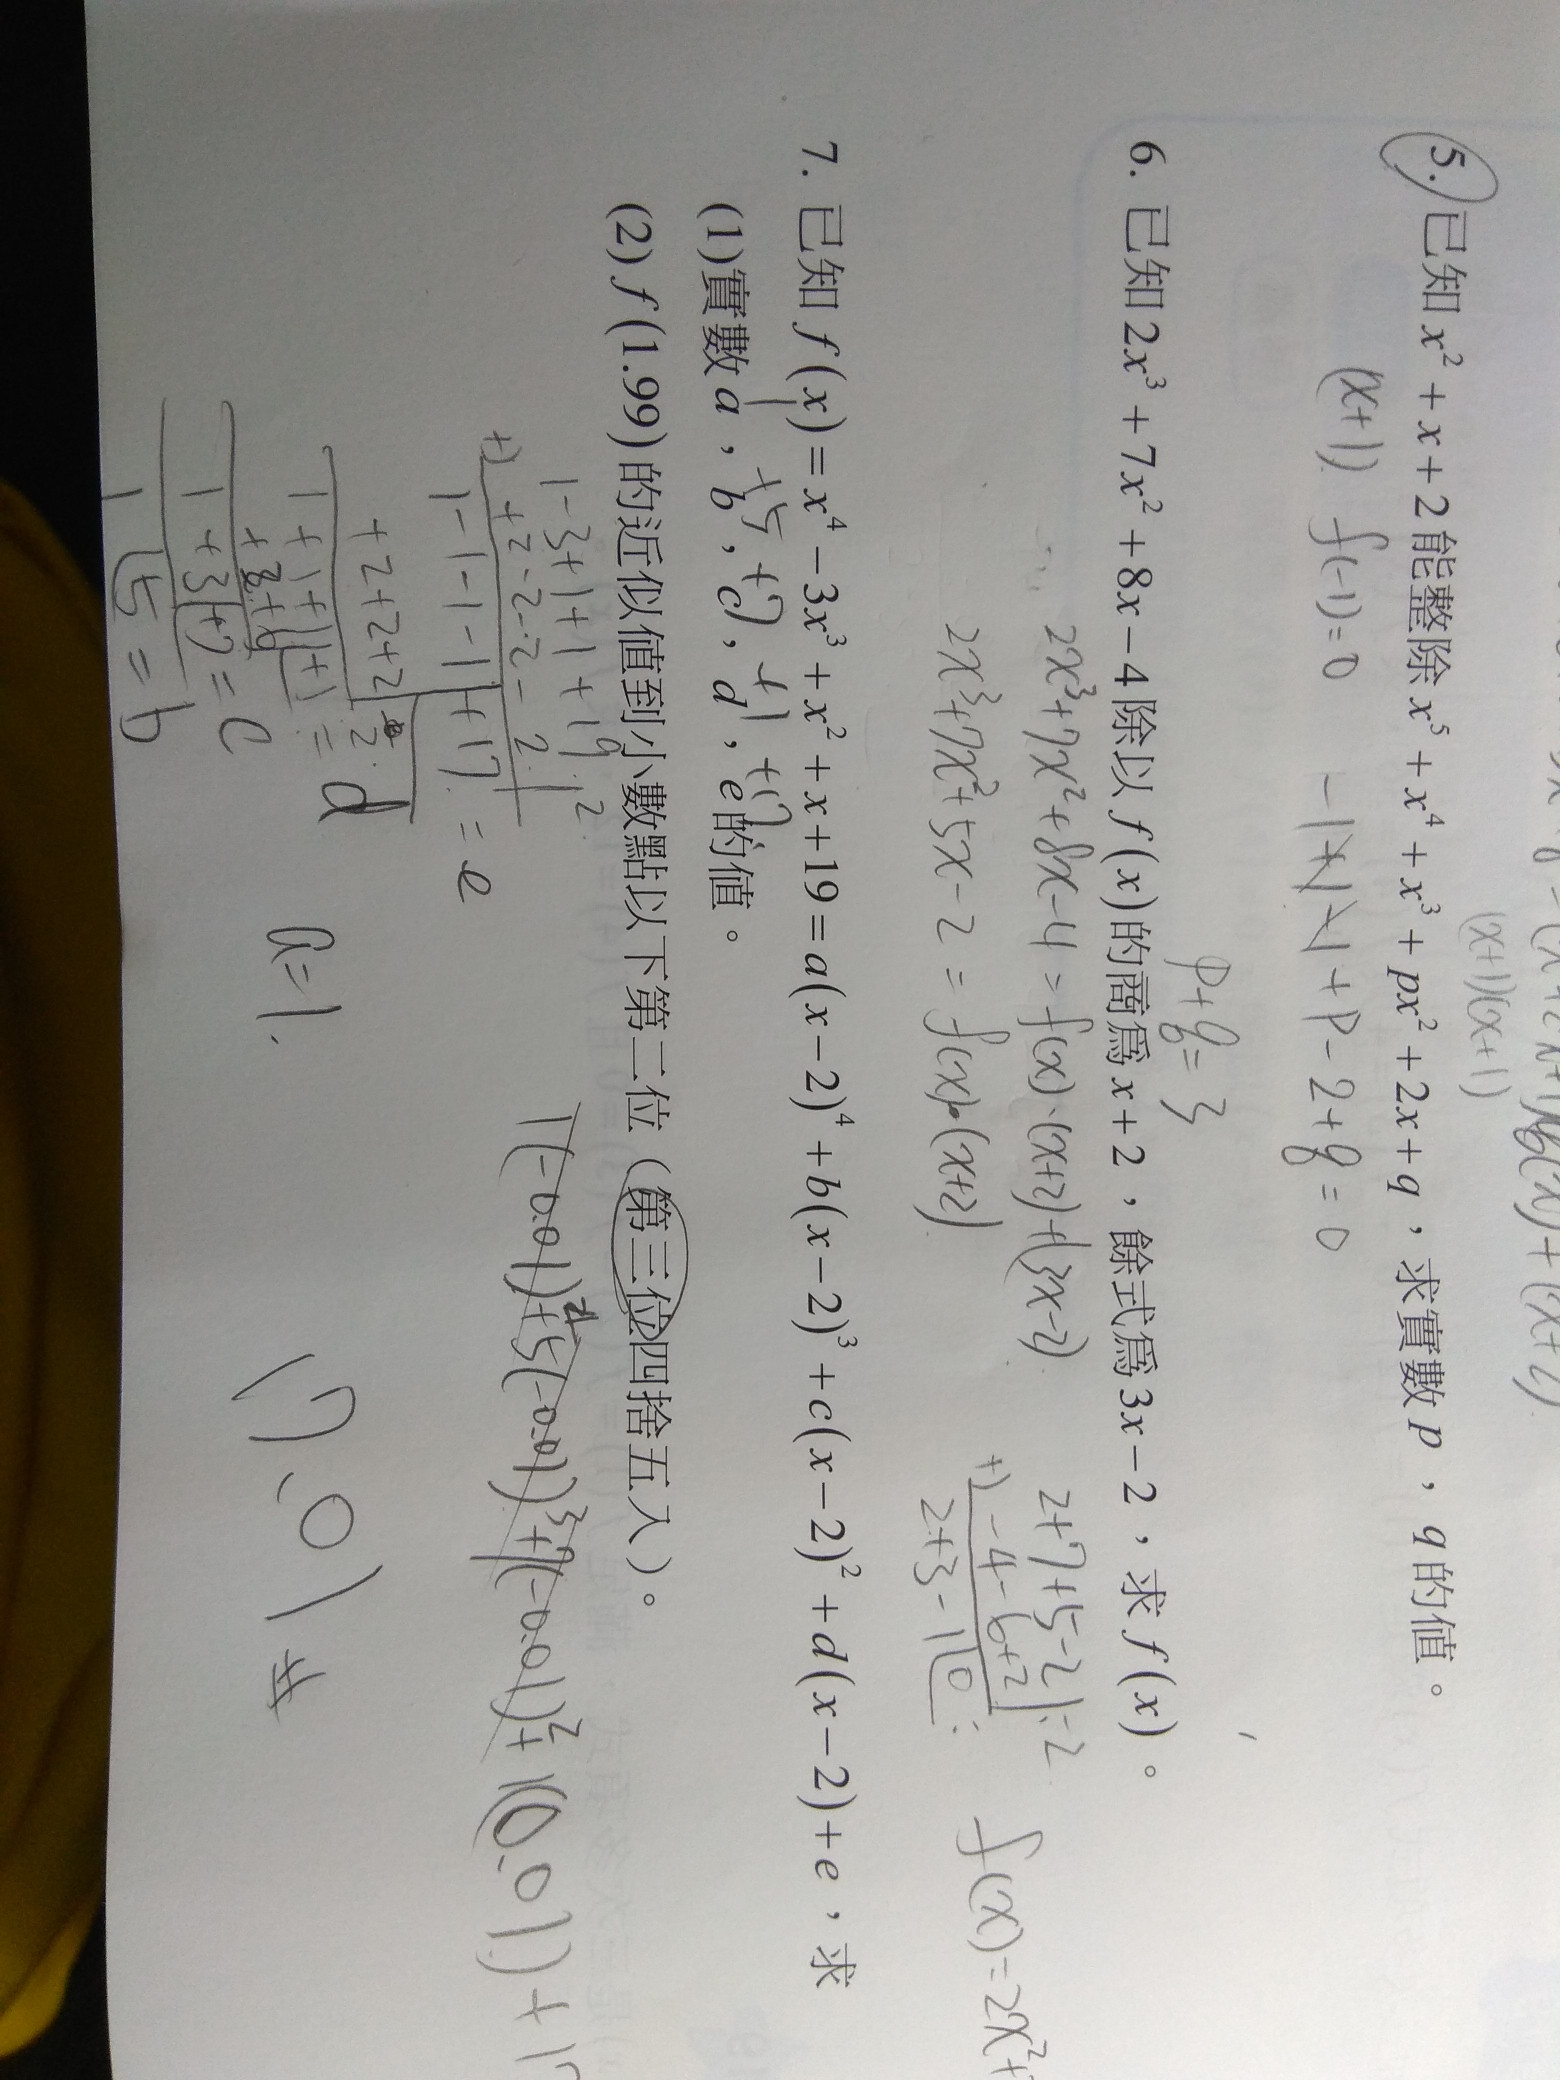 5. 已知 x² + x + 2 能整除 x⁵ + x⁴ + x³ + px² + 2x + q，求實數 p，q 的值。
(x+1)(x+1)
(x+1) f(-1)=0 -1+1-1+p-2+q=0
p+q=3
6. 已知 2x³ + 7x² + 8x − 4 除以 f(x) 的商為 x + 2，餘式為 3x − 2，求 f(x)。
2x³+7x²+8x-4=f(x)·(x+2)+(3x-2)
2x³+7x²+5x-2=f(x)·(x+2)
2+7+5-2|-2
+) -4-6+2
2+3-1|0
f(x)=2x²+
7. 已知 f(x) = x⁴ − 3x³ + x² + x + 19 = a(x − 2)⁴ + b(x − 2)³ + c(x − 2)² + d(x − 2) + e，求
(1) 實數 a，b，c，d，e 的值。
1 +5 +7 +1 +17
(2) f(1.99) 的近似值到小數點以下第二位（第三位四捨五入）。
1-3+1+1+19|2
+) +2-2-2-2
1-1-1-1|+17=e
+2+2+2|2
1+1+1|+1=d
1+3|+7=c
1|5=b
a=1
1(-0.01)⁴+5(-0.01)³+7(-0.01)²+1(0.01)+17
17.01#